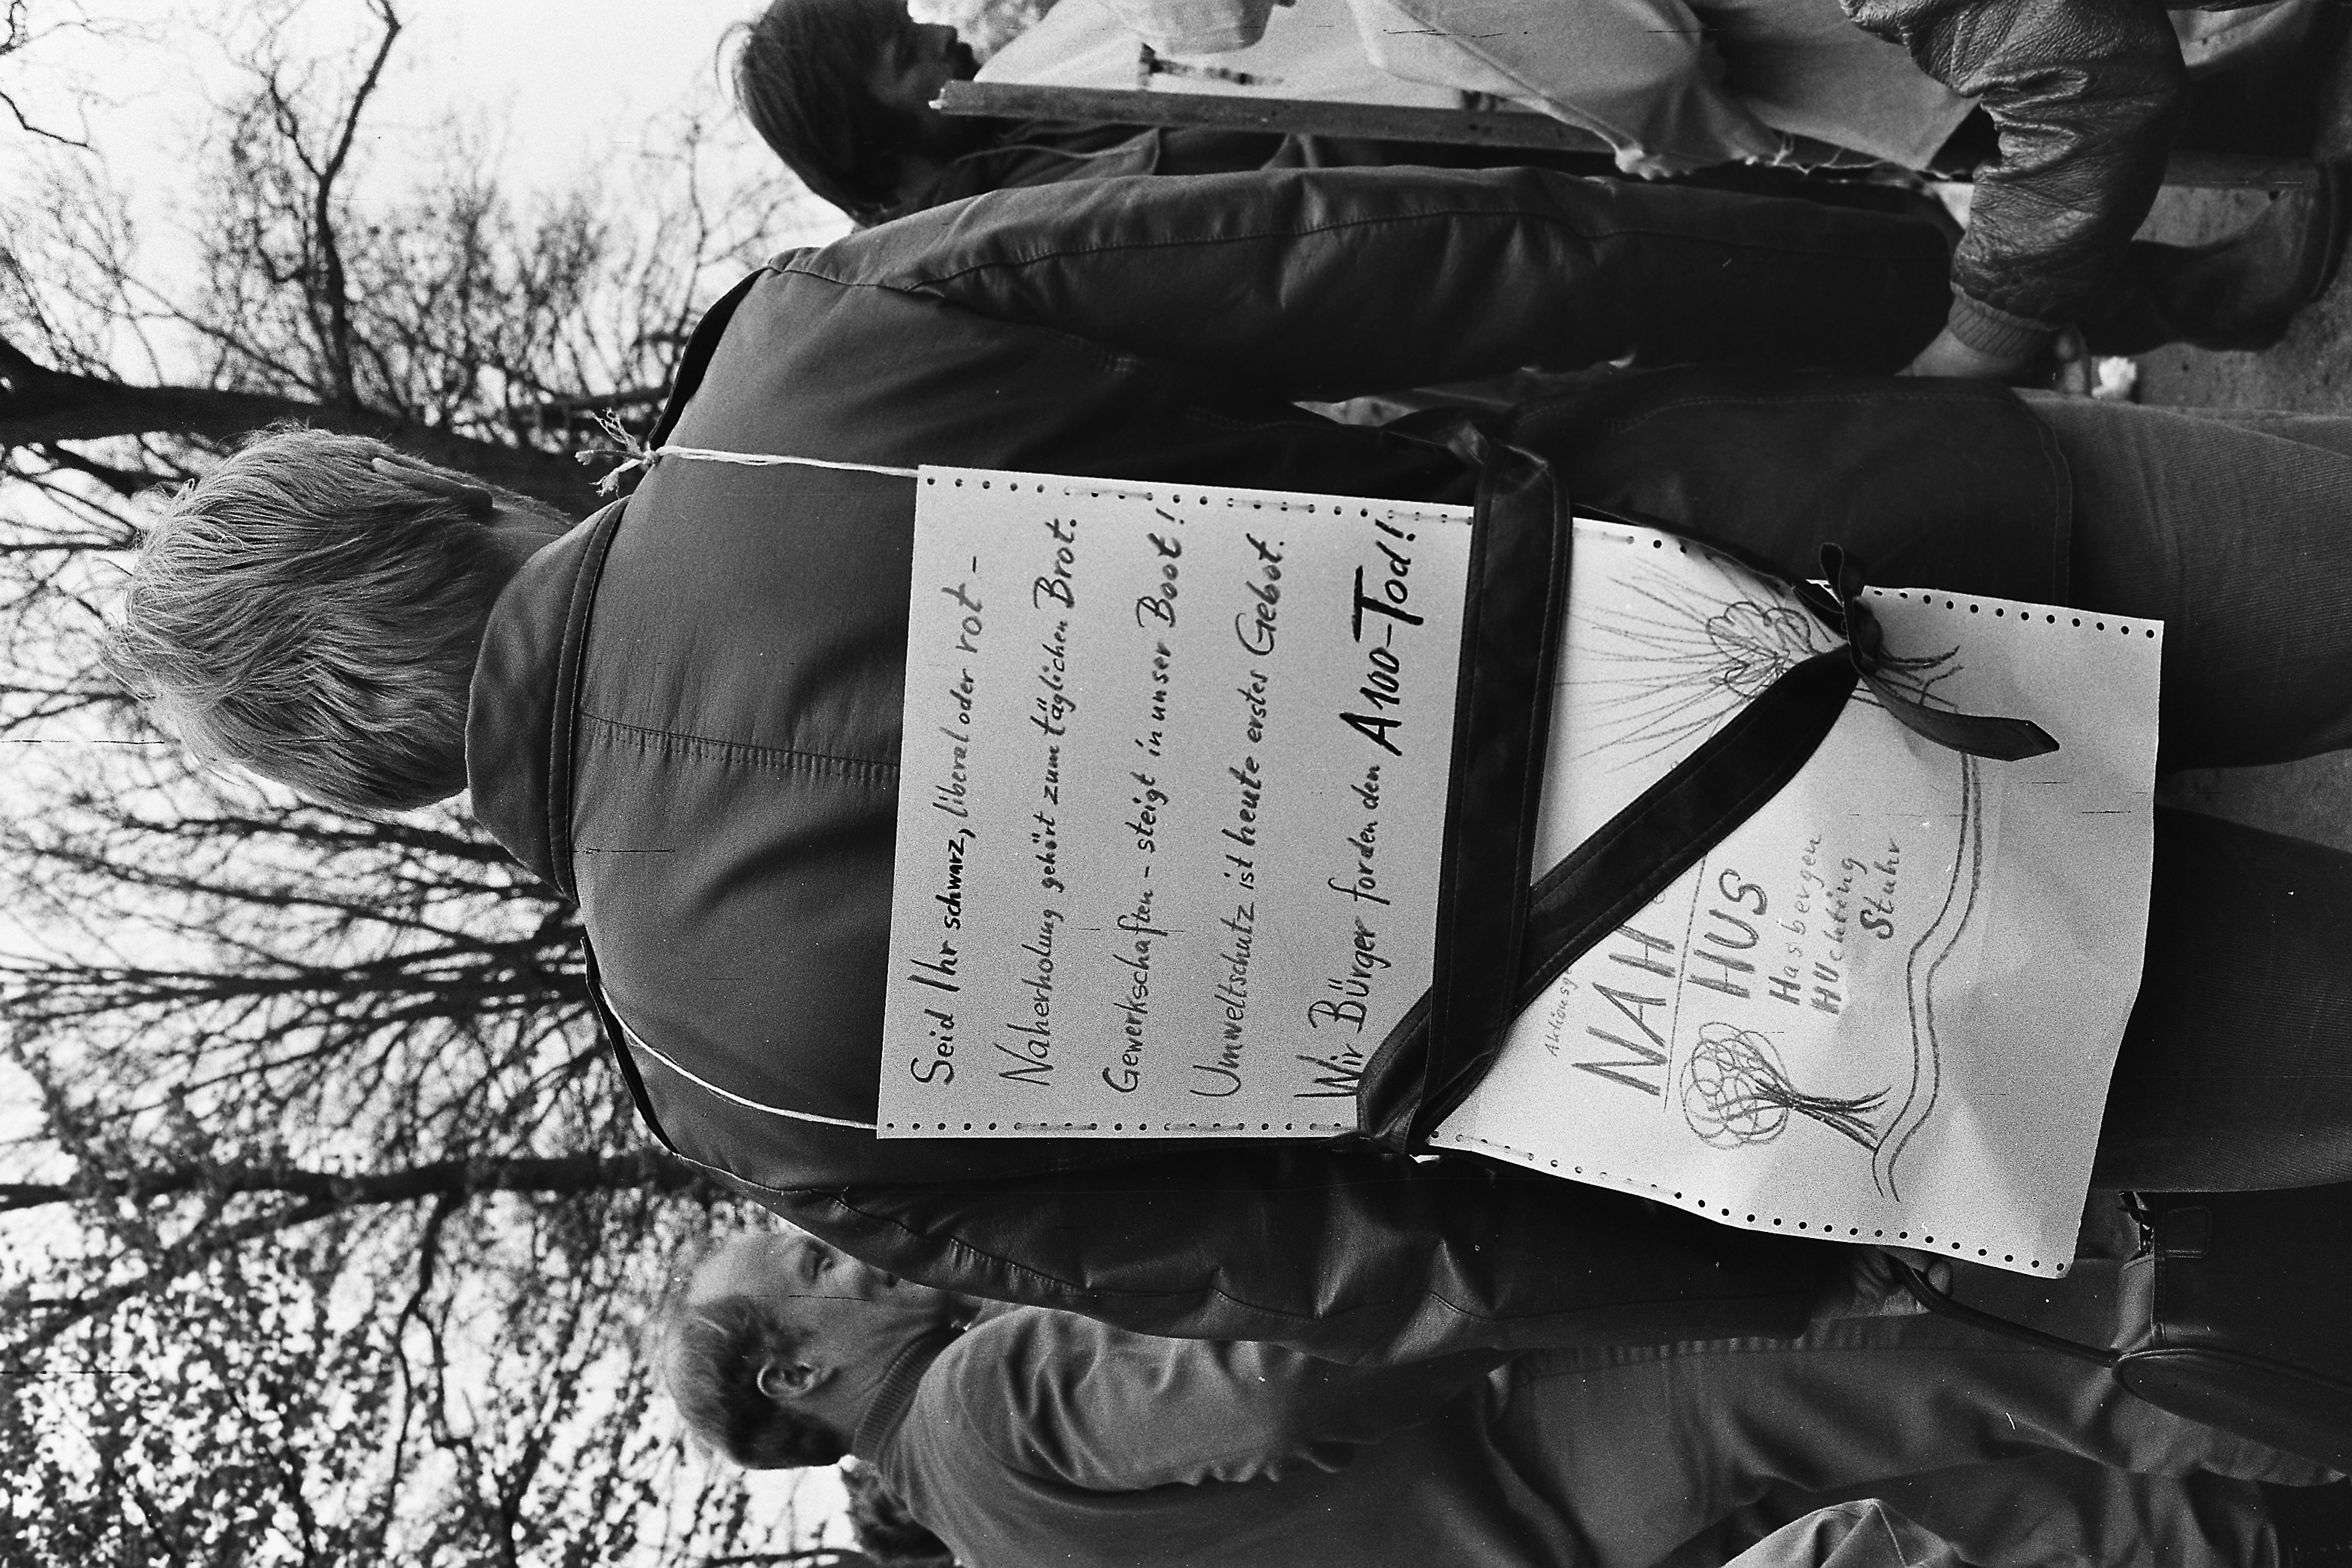 Seid Ihr schwarz, liberal oder rot -
Naherholung gehört zum täglichen Brot.
Gewerkschaften - steigt in unser Boot!
Umweltschutz ist heute erstes Gebot.
Wir Bürger forden den A100-Tod!
NAH
HUS
Hasbergen
HUchting
Stuhr